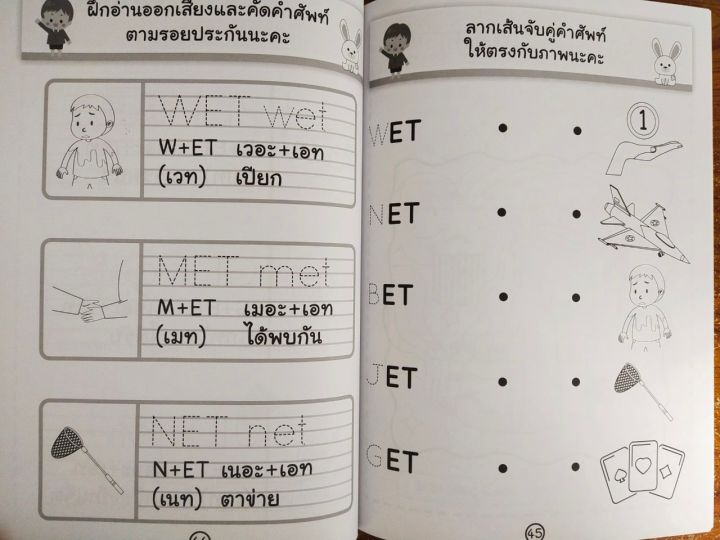 ฝึกอ่านออกเสียงและคัดคำศัพท์
ตามรอยประกันนะคะ
WET wet
W+ET เวอะ+เอท
(เวท) เปียก
MET met
M+ET เมอะ+เอท
(เมท) ได้พบกัน
NET net
N+ET เนอะ+เอท
(เนท) ตาข่าย
ลากเส้นจับคู่คำศัพท์
ให้ตรงกับภาพนะคะ
1
WET
NET
BET
JET
GET
45